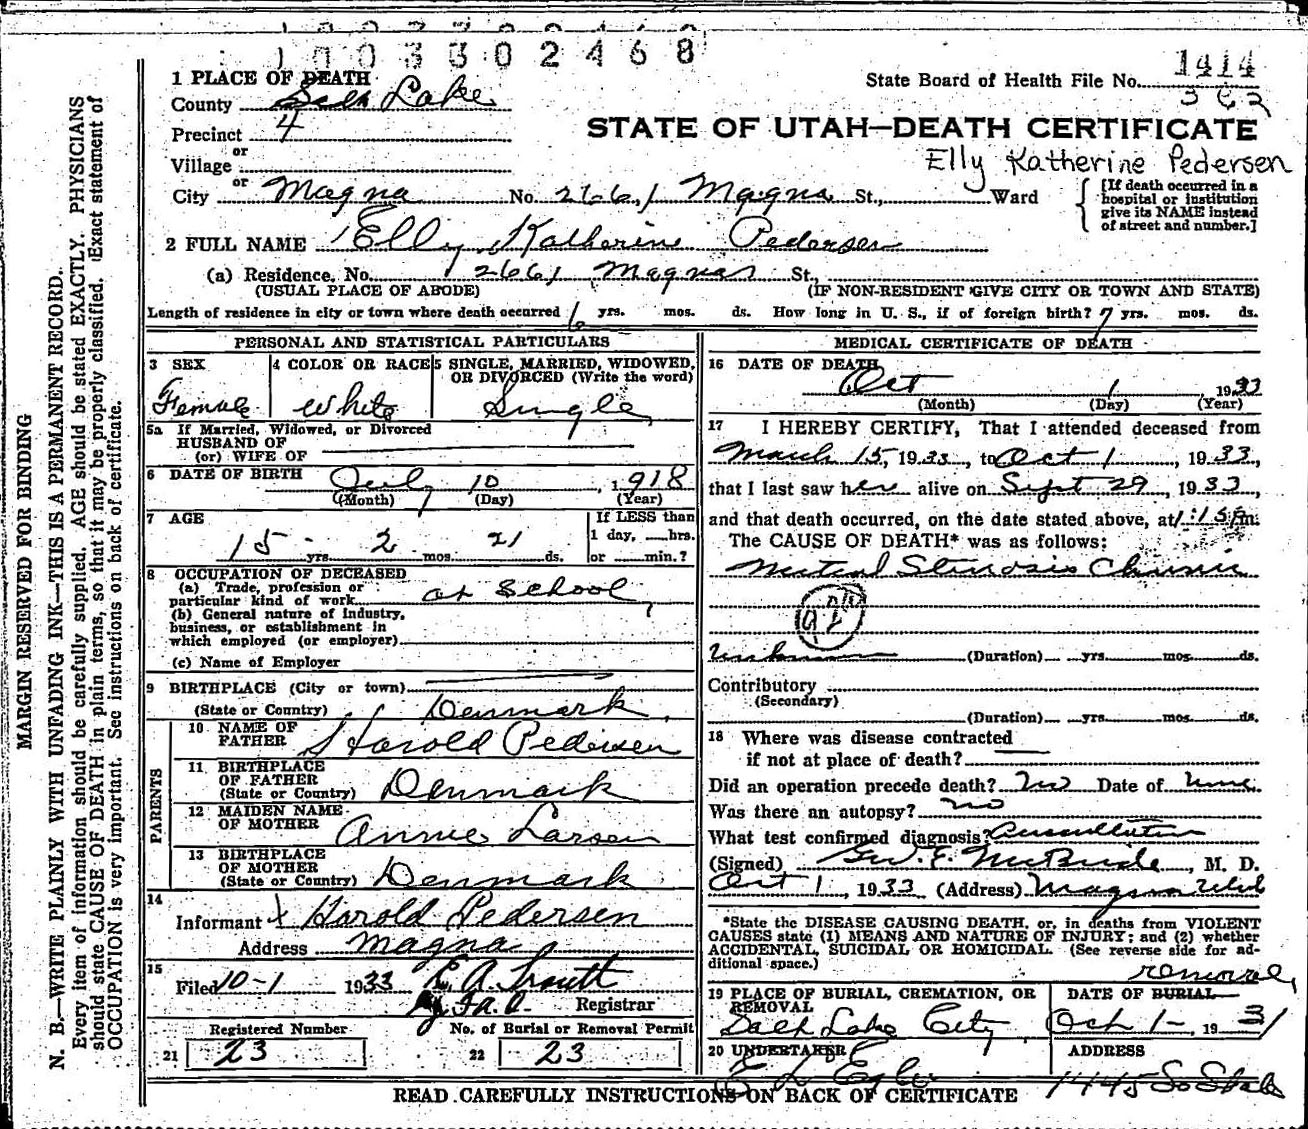 1003302468
1 PLACE OF DEATH
State Board of Health File No. 1414
362
County Salt Lake
Precinct 4
STATE OF UTAH—DEATH CERTIFICATE
or
Village
Elly Katherine Pedersen
or
City Magna No. 2661 Magna St., Ward
[If death occurred in a
hospital or institution
give its NAME instead
of street and number.]
2 FULL NAME Elly Katherine Pedersen
(a) Residence, No. 2661 Magna St.,
(USUAL PLACE OF ABODE) (IF NON-RESIDENT GIVE CITY OR TOWN AND STATE)
Length of residence in city or town where death occurred 6 yrs. mos. ds. How long in U. S., if of foreign birth? 7 yrs. mos. ds.
PERSONAL AND STATISTICAL PARTICULARS
3 SEX
Female
4 COLOR OR RACE
White
5 SINGLE, MARRIED, WIDOWED,
OR DIVORCED (Write the word)
Single
5a If Married, Widowed, or Divorced
HUSBAND OF
(or) WIFE OF
6 DATE OF BIRTH July 10, 1918
(Month) (Day) (Year)
7 AGE
15 yrs. 2 mos. 21 ds.
If LESS than
1 day, hrs.
or min.?
8 OCCUPATION OF DECEASED
(a) Trade, profession or
particular kind of work at School
(b) General nature of industry,
business, or establishment in
which employed (or employer)
(c) Name of Employer
9 BIRTHPLACE (City or town)
(State or Country) Denmark
PARENTS
10 NAME OF
FATHER Harold Pedersen
11 BIRTHPLACE
OF FATHER
(State or Country) Denmark
12 MAIDEN NAME
OF MOTHER Annie Larsen
13 BIRTHPLACE
OF MOTHER
(State or Country) Denmark
14
Informant Harold Pedersen
Address Magna
15
Filed 10-1 1933
Registrar
Registered Number No. of Burial or Removal Permit
21 23 22 23
MEDICAL CERTIFICATE OF DEATH
16 DATE OF DEATH
Oct 1 1933
(Month) (Day) (Year)
17 I HEREBY CERTIFY, That I attended deceased from
March 15, 1933, to Oct 1, 1933,
that I last saw her alive on Sept 29, 1933,
and that death occurred, on the date stated above, at 1:15 Pm.
The CAUSE OF DEATH* was as follows:
Mitral Stenosis Chronic
Unknown (Duration) yrs. mos. ds.
Contributory
(Secondary)
(Duration) yrs. mos. ds.
18 Where was disease contracted
if not at place of death?
Did an operation precede death? No Date of none
Was there an autopsy? no
What test confirmed diagnosis? Auscultation
(Signed) Geo. E. McBride, M. D.
Oct 1, 1933 (Address) Magna Utah
*State the DISEASE CAUSING DEATH, or, in deaths from VIOLENT
CAUSES state (1) MEANS AND NATURE OF INJURY; and (2) whether
ACCIDENTAL, SUICIDAL OR HOMICIDAL. (See reverse side for ad-
ditional space.)
removal
19 PLACE OF BURIAL, CREMATION, OR
REMOVAL
Salt Lake City
DATE OF BURIAL
Oct 1- , 193
20 UNDERTAKER
ADDRESS
1445 So State
READ CAREFULLY INSTRUCTIONS ON BACK OF CERTIFICATE
MARGIN RESERVED FOR BINDING
N. B.—WRITE PLAINLY WITH UNFADING INK—THIS IS A PERMANENT RECORD.
Every item of information should be carefully supplied. AGE should be stated EXACTLY. PHYSICIANS
should state CAUSE OF DEATH in plain terms, so that it may be properly classified. Exact statement of
OCCUPATION is very important. See instructions on back of certificate.